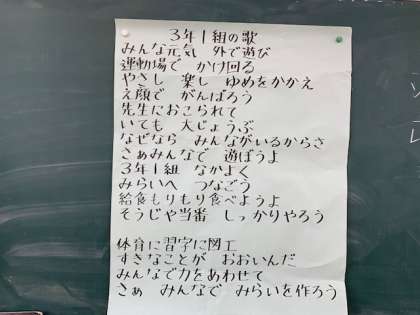 3年1組の歌
みんな元気 外で遊び
運動場で かけ回る
やさし 楽し ゆめをかかえ
え顔で がんばろう
先生におこられて
いても 大じょうぶ
なぜなら みんながいるからさ
さぁみんなで 遊ぼうよ
3年1組 なかよく
みらいへ つなごう
給食もりもり食べようよ
そうじや当番 しっかりやろう
体育に習字に図工
すきなことが おおいんだ
みんなで力をあわせて
さぁ みんなで みらいを作ろう